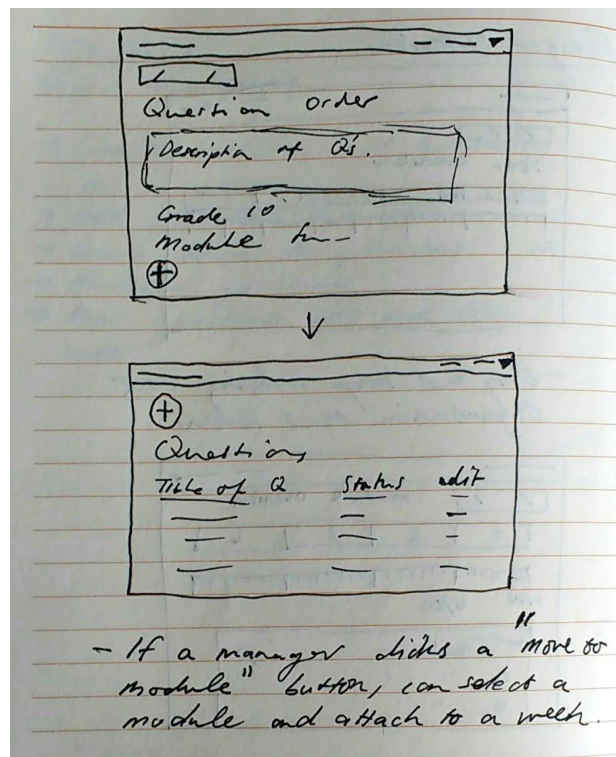 Question order
Description of Q's.
Grade 10
Module
Questions
Title of Q Status edit
- If a manager clicks a "move to
module" button, can select a
module and attach to a week.